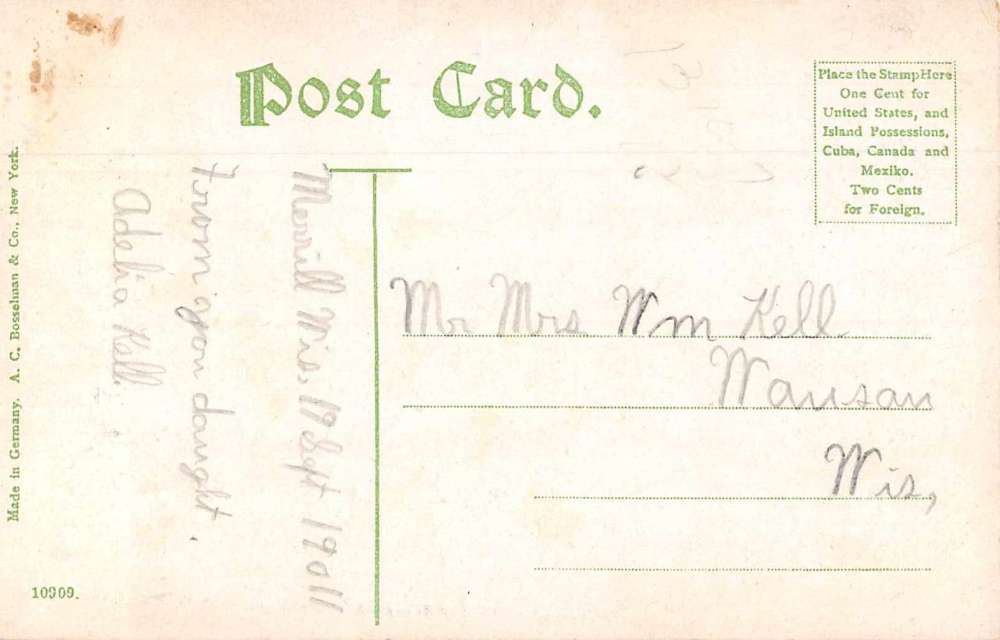 Post Card.
Place the Stamp Here
One Cent for
United States, and
Island Possessions,
Cuba, Canada and
Mexiko.
Two Cents
for Foreign.
Merrill Wis, 19 Sept 19011
From your daught.
Adelia Kell.
Mr Mrs Wm Kell
Wausau
Wis,
Made in Germany. A. C. Bosselman & Co., New York.
10909.